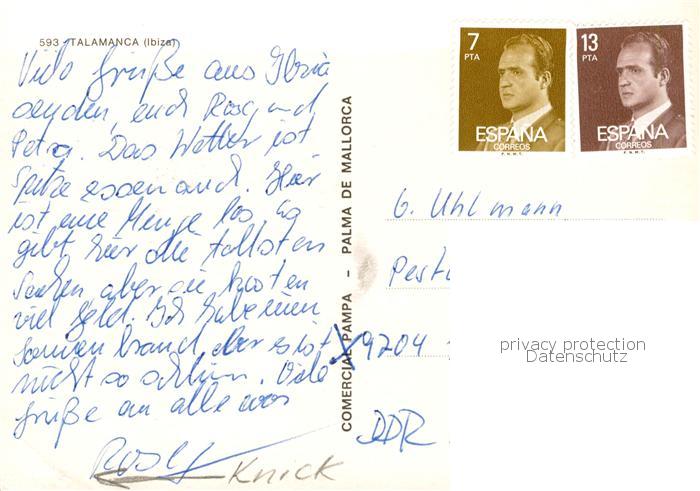 593 TALAMANCA (Ibiza)
Viele Grüße aus Ibiza
senden euch Rosy und
Petra. Das Wetter ist
Spitze essen auch. Hier
ist eine Menge los. Es
gibt hier die tollsten
Sachen aber sie kosten
viel Geld. Ich habe einen
Sonnenbrand aber es ist
nicht so schlimm. Viele
Grüße an alle von
Rosy
Knick
COMERCIAL PAMPA – PALMA DE MALLORCA
7
PTA
ESPAÑA
CORREOS
F.N.M.T.
13
PTA
ESPAÑA
CORREOS
F.N.M.T.
G. Uhlmann
9204
DDR
privacy protection
Datenschutz